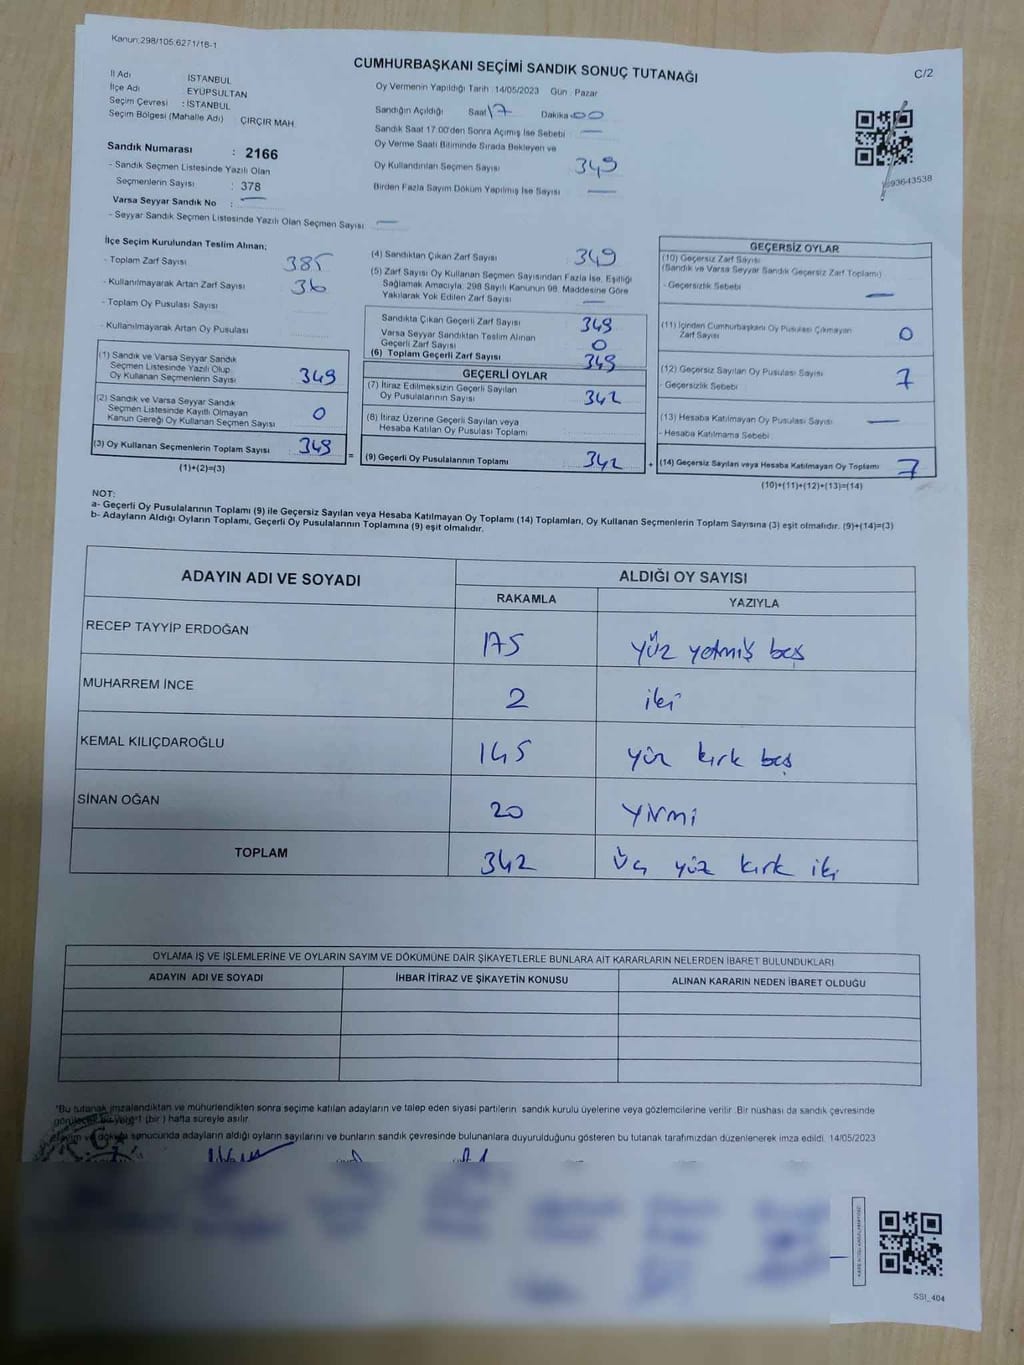 Kanun:298/105;6271/16-1
CUMHURBAŞKANI SEÇİMİ SANDIK SONUÇ TUTANAĞI
C/2
İl Adı İSTANBUL
İlçe Adı EYÜPSULTAN
Seçim Çevresi : İSTANBUL
Seçim Bölgesi (Mahalle Adı) ÇIRÇIR MAH.
Sandık Numarası : 2166
- Sandık Seçmen Listesinde Yazılı Olan
Seçmenlerin Sayısı : 378
Varsa Seyyar Sandık No : —
- Seyyar Sandık Seçmen Listesinde Yazılı Olan Seçmen Sayısı —
Oy Vermenin Yapıldığı Tarih : 14/05/2023 Gün : Pazar
Sandığın Açıldığı Saat 17 Dakika 00
Sandık Saat 17:00'den Sonra Açımış İse Sebebi —
Oy Verme Saati Bitiminde Sırada Bekleyen ve
Oy Kullandırılan Seçmen Sayısı 349
Birden Fazla Sayım Döküm Yapılmış İse Sayısı —
İlçe Seçim Kurulundan Teslim Alınan;
- Toplam Zarf Sayısı 385
- Kullanılmayarak Artan Zarf Sayısı 36
- Toplam Oy Pusulası Sayısı
- Kullanılmayarak Artan Oy Pusulası
(1) Sandık ve Varsa Seyyar Sandık
Seçmen Listesinde Yazılı Olup
Oy Kullanan Seçmenlerin Sayısı 349
(2) Sandık ve Varsa Seyyar Sandık
Seçmen Listesinde Kayıtlı Olmayan
Kanun Gereği Oy Kullanan Seçmen Sayısı 0
(3) Oy Kullanan Seçmenlerin Toplam Sayısı 349
(1)+(2)=(3)
(4) Sandıktan Çıkan Zarf Sayısı 349
(5) Zarf Sayısı Oy Kullanan Seçmen Sayısından Fazla İse, Eşitliği
Sağlamak Amacıyla, 298 Sayılı Kanunun 98. Maddesine Göre
Yakılarak Yok Edilen Zarf Sayısı —
Sandıkta Çıkan Geçerli Zarf Sayısı 349
Varsa Seyyar Sandıktan Teslim Alınan
Geçerli Zarf Sayısı 0
(6) Toplam Geçerli Zarf Sayısı 349
GEÇERLİ OYLAR
(7) İtiraz Edilmeksizin Geçerli Sayılan
Oy Pusulalarının Sayısı 342
(8) İtiraz Üzerine Geçerli Sayılan veya
Hesaba Katılan Oy Pusulası Toplamı
= (9) Geçerli Oy Pusulalarının Toplamı 342 +
GEÇERSİZ OYLAR
(10) Geçersiz Zarf Sayısı
(Sandık ve Varsa Seyyar Sandık Geçersiz Zarf Toplamı)
- Geçersizlik Sebebi —
(11) İçinden Cumhurbaşkanı Oy Pusulası Çıkmayan
Zarf Sayısı 0
(12) Geçersiz Sayılan Oy Pusulası Sayısı 7
- Geçersizlik Sebebi
(13) Hesaba Katılmayan Oy Pusulası Sayısı —
- Hesaba Katılmama Sebebi
(14) Geçersiz Sayılan veya Hesaba Katılmayan Oy Toplamı 7
(10)+(11)+(12)+(13)=(14)
NOT:
a- Geçerli Oy Pusulalarının Toplamı (9) ile Geçersiz Sayılan veya Hesaba Katılmayan Oy Toplamı (14) Toplamları, Oy Kullanan Seçmenlerin Toplam Sayısına (3) eşit olmalıdır. (9)+(14)=(3)
b- Adayların Aldığı Oyların Toplamı, Geçerli Oy Pusulalarının Toplamına (9) eşit olmalıdır.
ADAYIN ADI VE SOYADI ALDIĞI OY SAYISI
RAKAMLA YAZIYLA
RECEP TAYYİP ERDOĞAN 175 yüz yetmiş beş
MUHARREM İNCE 2 iki
KEMAL KILIÇDAROĞLU 145 yüz kırk beş
SİNAN OĞAN 20 yirmi
TOPLAM 342 üç yüz kırk iki
OYLAMA İŞ VE İŞLEMLERİNE VE OYLARIN SAYIM VE DÖKÜMÜNE DAİR ŞİKAYETLERLE BUNLARA AİT KARARLARIN NELERDEN İBARET BULUNDUKLARI
ADAYIN ADI VE SOYADI İHBAR İTİRAZ VE ŞİKAYETİN KONUSU ALINAN KARARIN NEDEN İBARET OLDUĞU
*Bu tutanak imzalandıktan ve mühürlendikten sonra seçime katılan adayların ve talep eden siyasi partilerin sandık kurulu üyelerine veya gözlemcilerine verilir. Bir nüshası da sandık çevresinde
görülecek bir yere 1 (bir) hafta süreyle asılır.
Sayım ve döküm sonucunda adayların aldığı oyların sayılarını ve bunların sandık çevresinde bulunanlara duyurulduğunu gösteren bu tutanak tarafımızdan düzenlenerek imza edildi. 14/05/2023
SSI_404